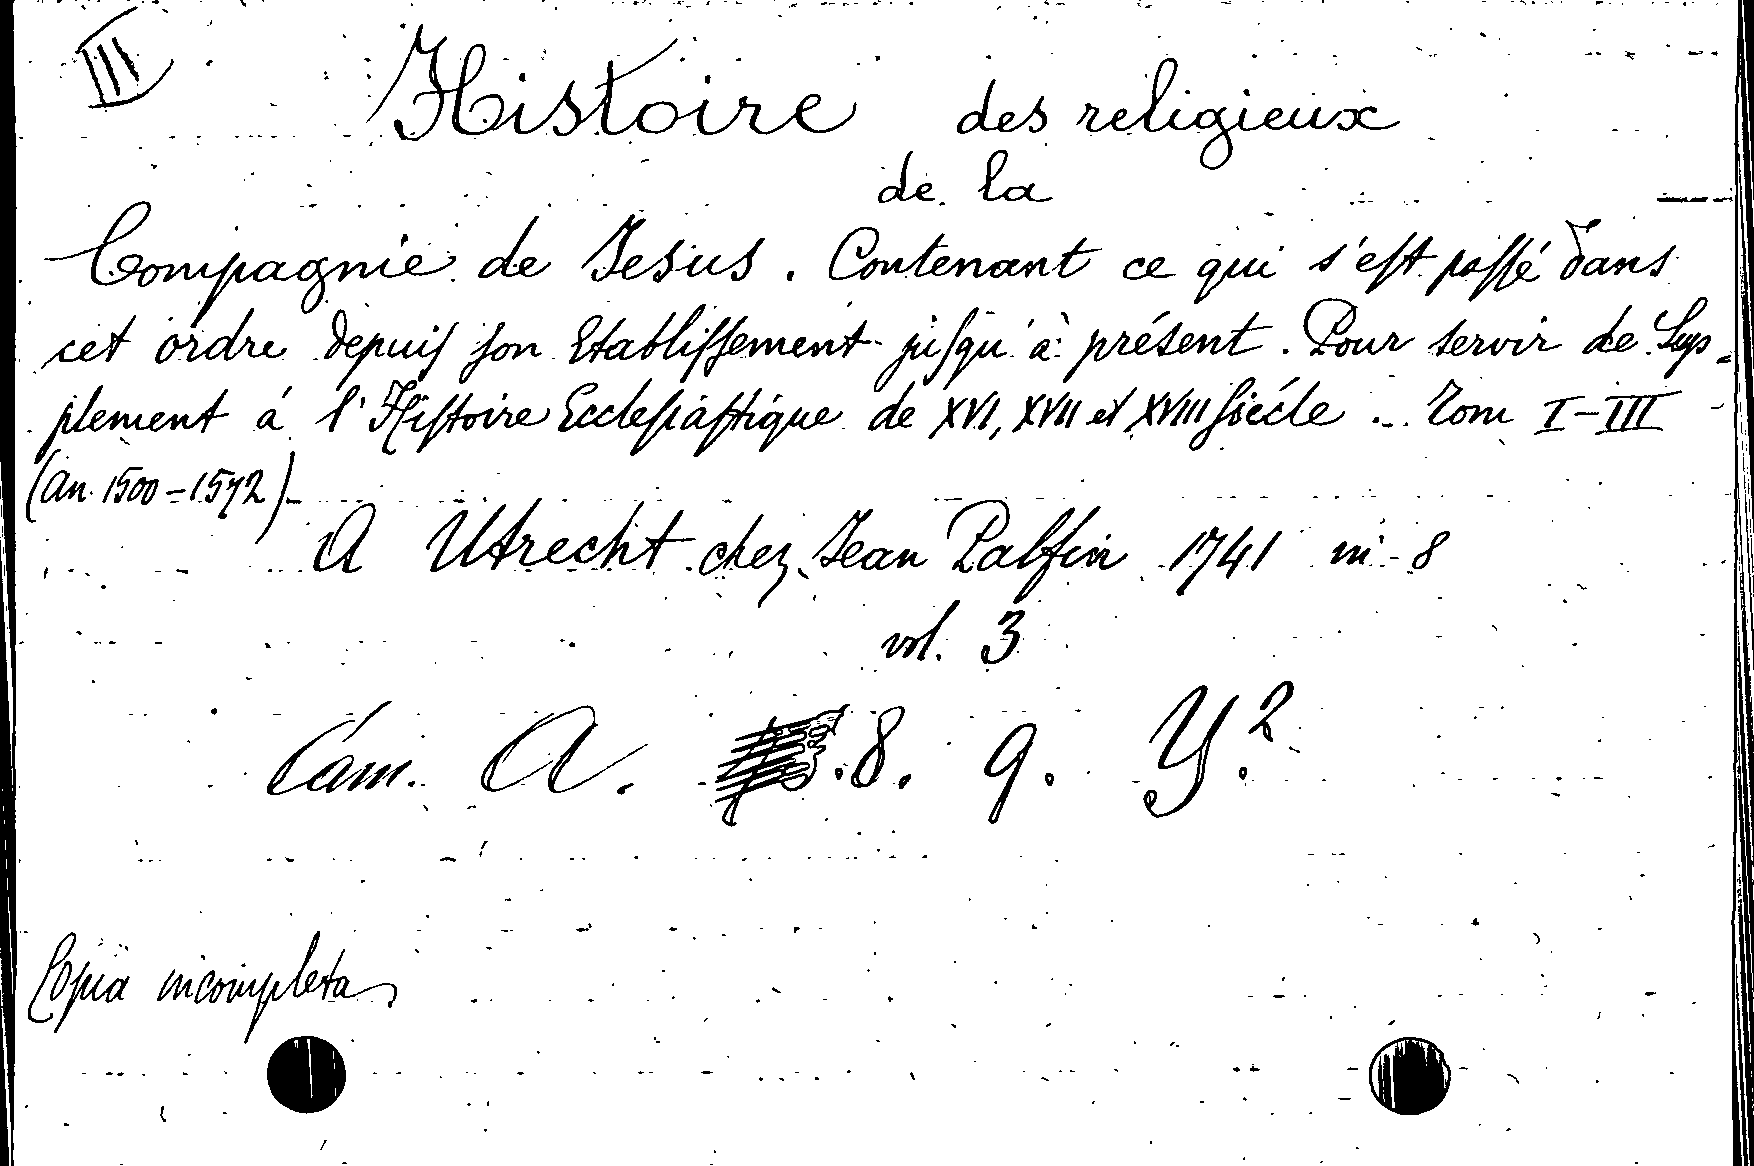 III
Histoire des religieux
de la
Compagnie de Jesus. Contenant ce qui s'eſt paſſé dans
cet ordre depuiſ ſon Etabliſſement juſqu'à présent. Pour servir de Sup=
plement á l'Hiſtoire Eccleſiaſtique de XVI, XVII et XVIII ſiécle ... Tom I-III
(an. 1500-1572)
A Utrecht chez Jean Palfin 1741 in 8
vol. 3
Cam. A. .8. 9. Y.2
Copia incompleta